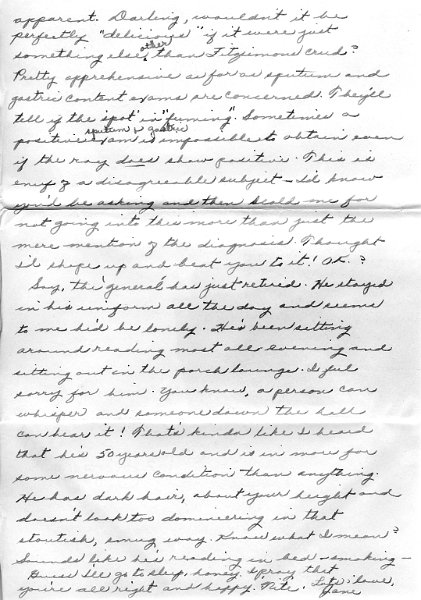 apparent. Darling, wouldn't it be
perfectly "delicious" if it were just
something else other than Fitzsimons crud?
Pretty apprehensive as far as sputum and
gastric content exams are concerned. They'll
tell if the spot is "fuming". Sometimes a
positive sputum & gastric exam is impossible to obtain even
if the xray does show positive. This is
enuf of a disagreeable subject - I'd know
you'd be asking and then scold me for
not going into this more than just the
mere mention of the diagnosis. Thought
I'd shape up and beat you to it! OK.?
Say, the general has just retired. He stayed
in his uniform all the day and seems
to me he'd be lonely. He's been sitting
around reading most all evening and
sitting out in the porch lounge. I feel
sorry for him. You know, a person can
whisper and someone down the hall
can hear it! That's kinda like I heard
that he's 50 years old and is in more for
some nervous condition than anything.
He has dark hair, about your height and
doesn't look too domineering in that
stoutish, smug way. Know what I mean?
Sounds like he's reading in bed - smoking -
Guess I'll go to sleep, honey. I pray that
you're all right and happy. Nite. Lots love,
Jane